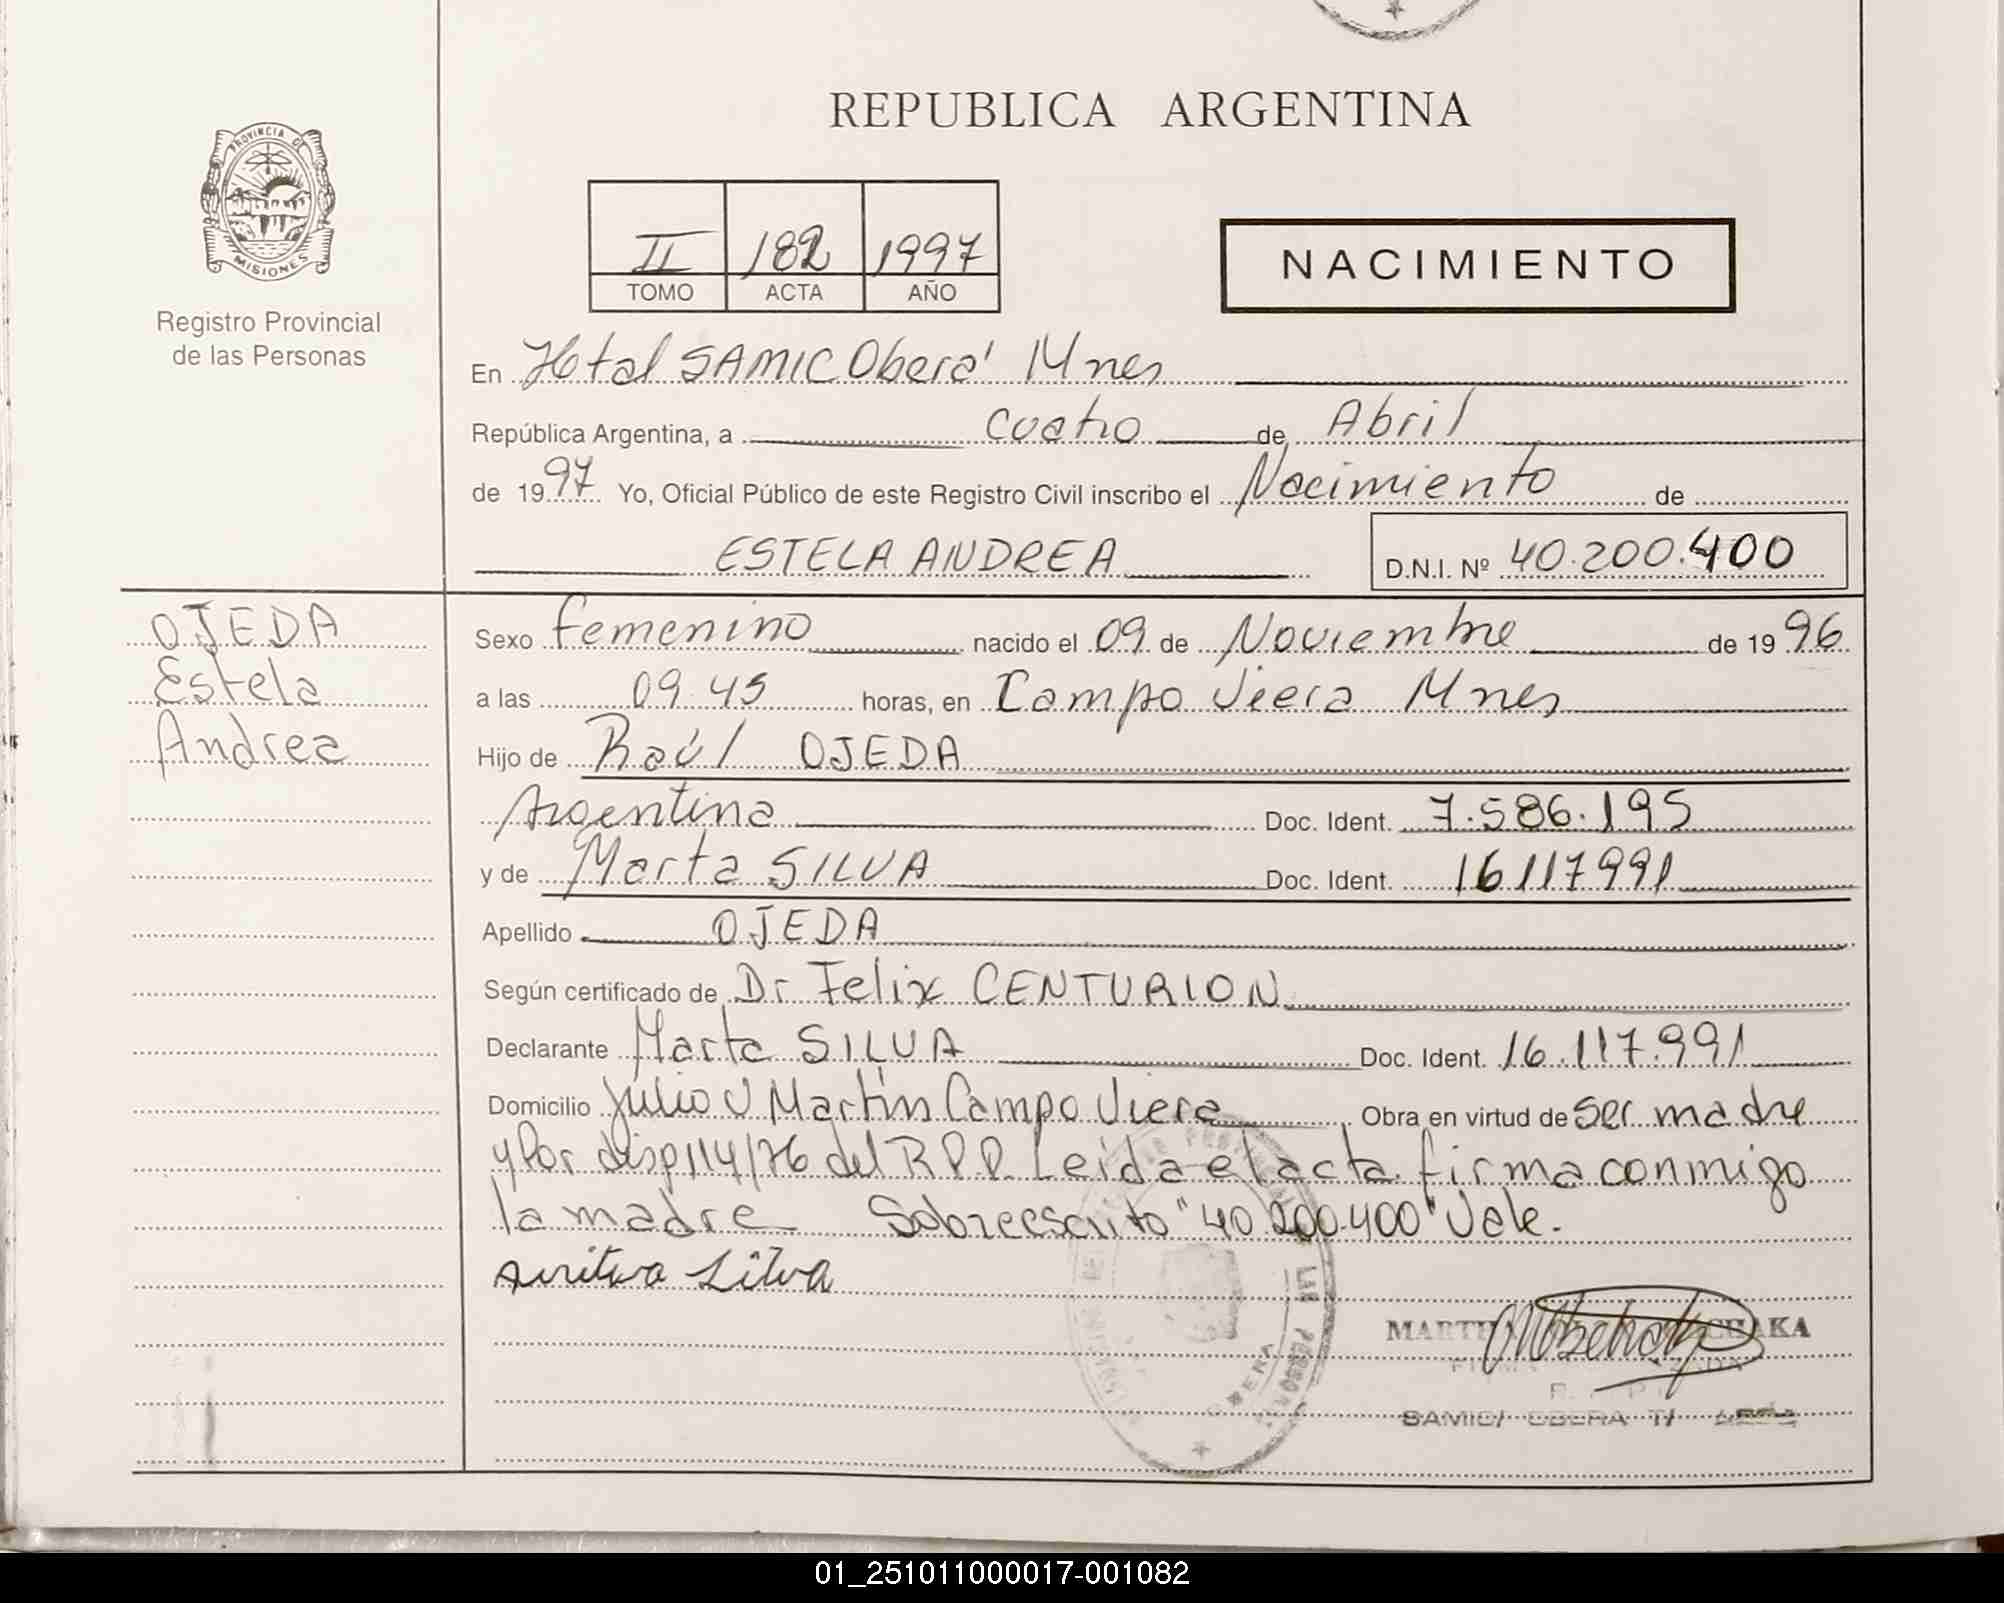 REPUBLICA ARGENTINA
PROVINCIA DE
MISIONES
Registro Provincial
de las Personas
II 182 1997
TOMO ACTA AÑO
NACIMIENTO
En Htal SAMIC Oberá Mnes
República Argentina, a cuatro de Abril
de 1997 Yo, Oficial Público de este Registro Civil inscribo el Nacimiento de
ESTELA ANDREA D.N.I. Nº 40.200.400
OJEDA
Estela
Andrea
Sexo femenino nacido el 09 de Noviembre de 1996
a las 09.45 horas, en Campo Viera Mnes
Hijo de Raúl OJEDA
Argentina Doc. Ident. 7.586.195
y de Marta SILVA Doc. Ident. 16117991
Apellido OJEDA
Según certificado de Dr Felix CENTURION
Declarante Marta SILVA Doc. Ident. 16.117.991
Domicilio Julio U Martín Campo Viera Obra en virtud de ser madre
y Por disp 114/76 del R.P.P. Leida el acta firma conmigo
la madre Sobreescrito "40.200.400" Vale.
Silva
MARTH CHAKA
SAMIC/ OBERA
01_251011000017-001082